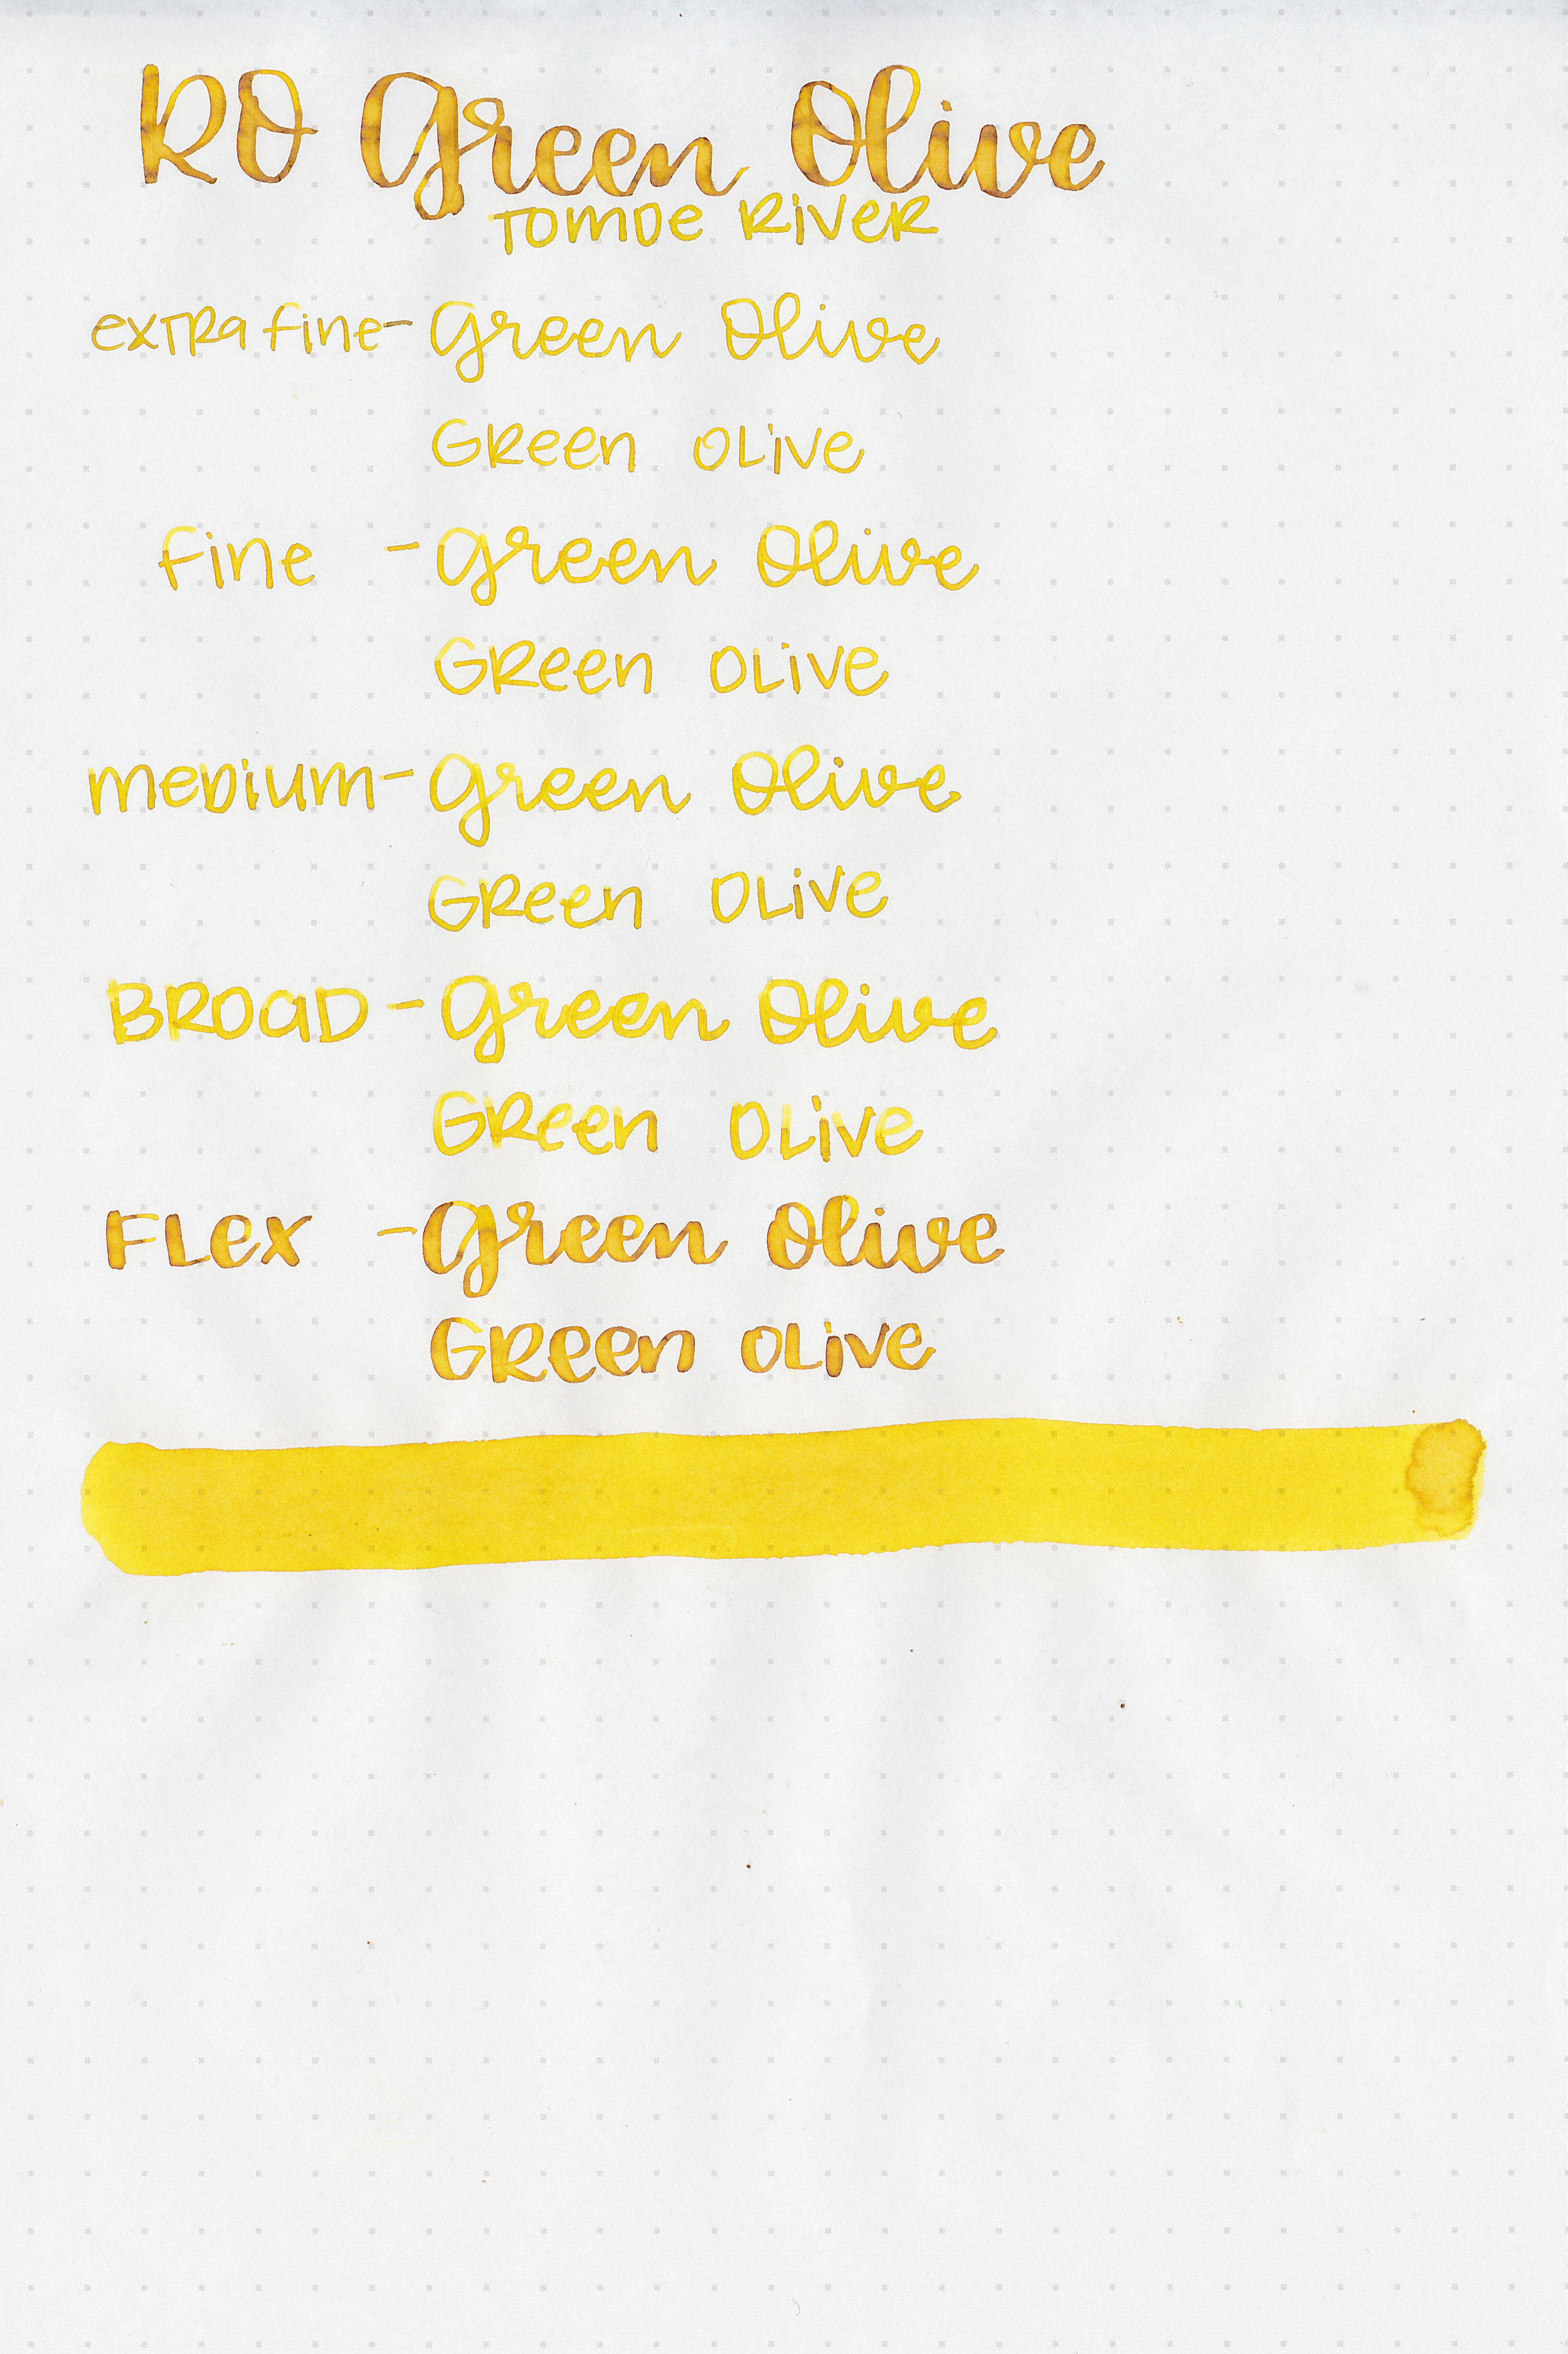 RO Green Olive
TOMOE RIVER
extra fine - Green Olive
Green Olive
fine - Green Olive
Green Olive
medium - Green Olive
Green Olive
BROAD - Green Olive
Green Olive
FLEX - Green Olive
Green Olive